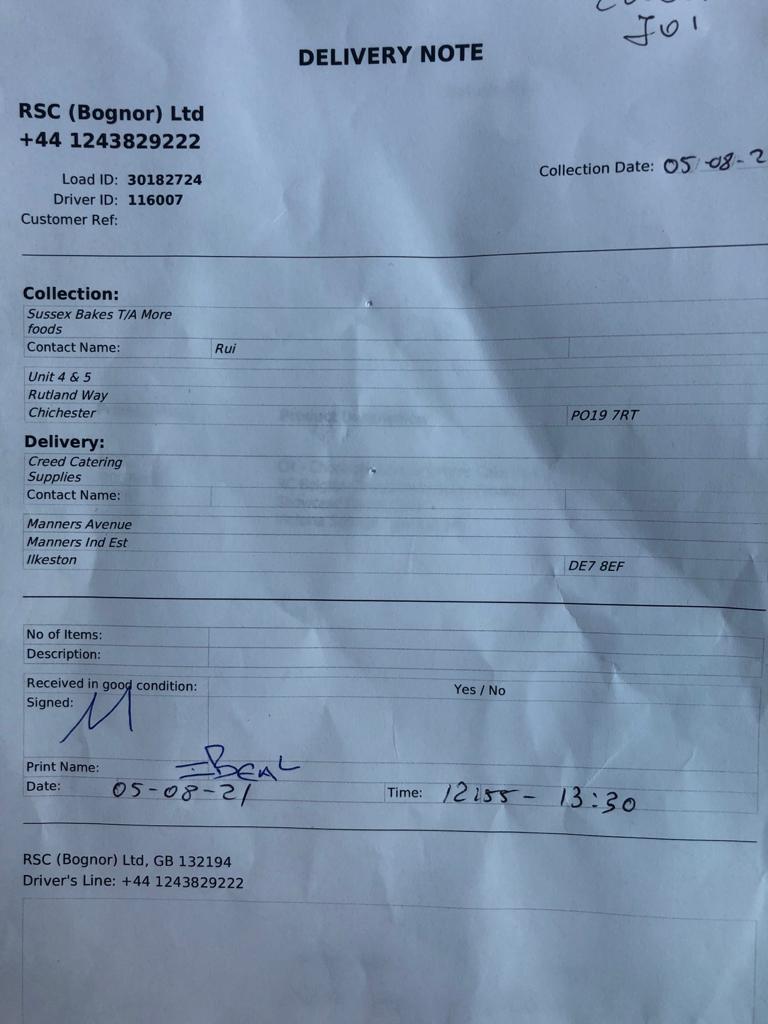 J01
DELIVERY NOTE
RSC (Bognor) Ltd
+44 1243829222
Collection Date: 05-08-2
Load ID: 30182724
Driver ID: 116007
Customer Ref:
Collection:
Sussex Bakes T/A More
foods
Contact Name: Rui
Unit 4 & 5
Rutland Way
Chichester PO19 7RT
Delivery:
Creed Catering
Supplies
Contact Name:
Manners Avenue
Manners Ind Est
Ilkeston DE7 8EF
No of Items:
Description:
Received in good condition: Yes / No
Signed:
Print Name: BEAL
Date: 05-08-21 Time: 12:55 - 13:30
RSC (Bognor) Ltd, GB 132194
Driver's Line: +44 1243829222